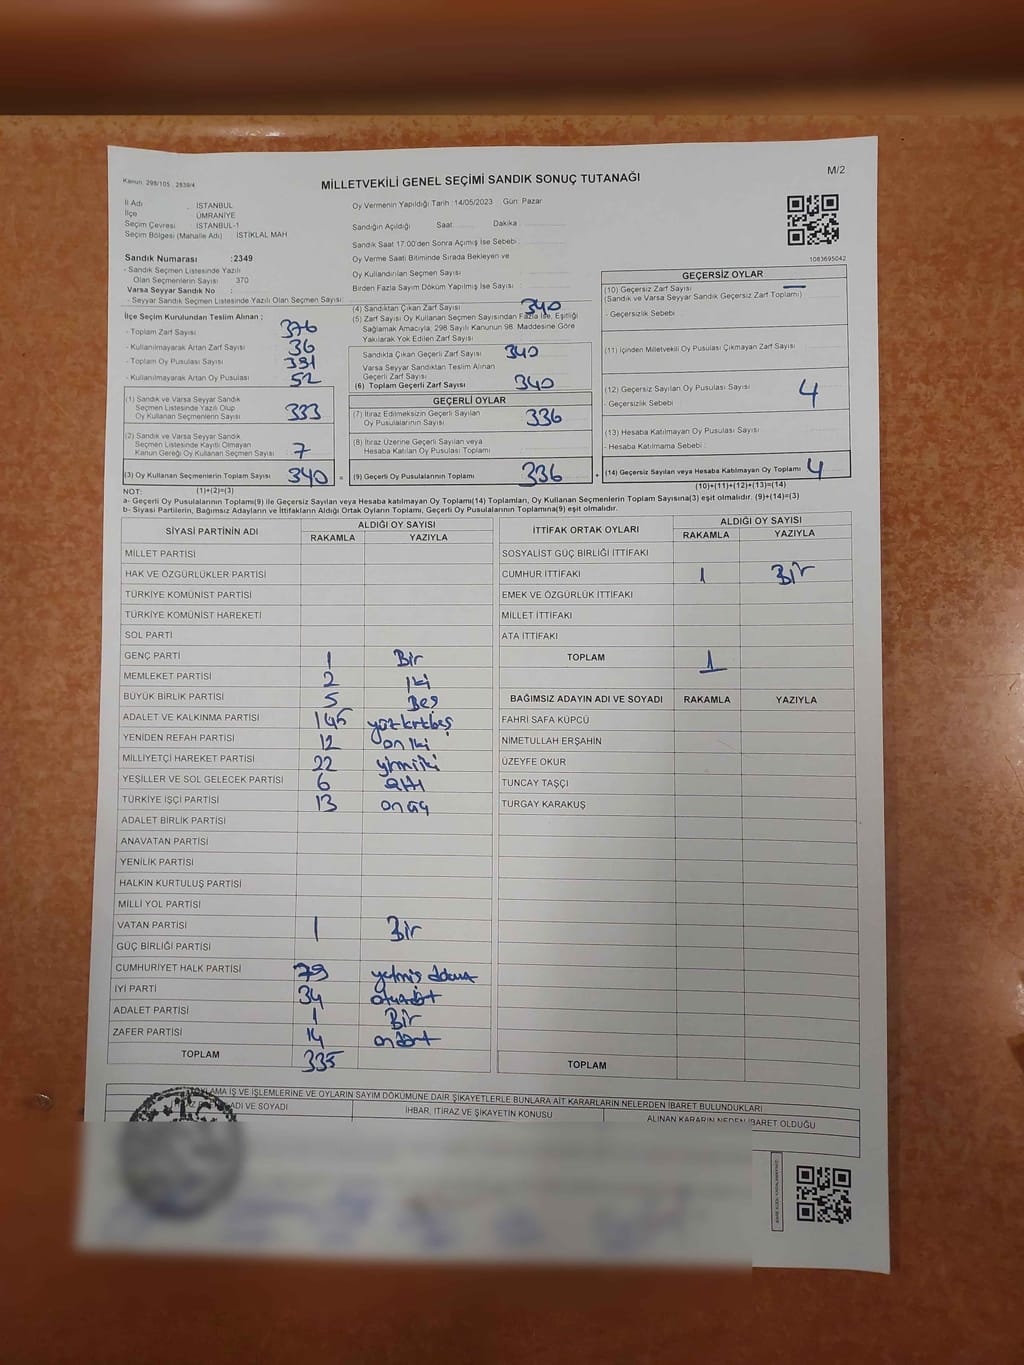 Kanun: 298/105, 2839/4
MİLLETVEKİLİ GENEL SEÇİMİ SANDIK SONUÇ TUTANAĞI
M/2
İl Adı : İSTANBUL
İlçe : ÜMRANİYE
Seçim Çevresi : İSTANBUL-1
Seçim Bölgesi (Mahalle Adı) : İSTİKLAL MAH
Sandık Numarası :2349
- Sandık Seçmen Listesinde Yazılı
Olan Seçmenlerin Sayısı 370
Varsa Seyyar Sandık No :
- Seyyar Sandık Seçmen Listesinde Yazılı Olan Seçmen Sayısı:
Oy Vermenin Yapıldığı Tarih :14/05/2023 Gün: Pazar
Sandığın Açıldığı Saat Dakika
Sandık Saat 17.00'den Sonra Açımış İse Sebebi
Oy Verme Saati Bitiminde Sırada Bekleyen ve
Oy Kullandırılan Seçmen Sayısı
Birden Fazla Sayım Döküm Yapılmış İse Sayısı
1083695042
İlçe Seçim Kurulundan Teslim Alınan :
- Toplam Zarf Sayısı 376
- Kullanılmayarak Artan Zarf Sayısı 36
- Toplam Oy Pusulası Sayısı 391
- Kullanılmayarak Artan Oy Pusulası 52
(1) Sandık ve Varsa Seyyar Sandık
Seçmen Listesinde Yazılı Olup
Oy Kullanan Seçmenlerin Sayısı 333
(2) Sandık ve Varsa Seyyar Sandık
Seçmen Listesinde Kayıtlı Olmayan
Kanun Gereği Oy Kullanan Seçmen Sayısı 7
(3) Oy Kullanan Seçmenlerin Toplam Sayısı 340 =
(4) Sandıktan Çıkan Zarf Sayısı 340
(5) Zarf Sayısı Oy Kullanan Seçmen Sayısından Fazla İse, Eşitliği
Sağlamak Amacıyla, 298 Sayılı Kanunun 98. Maddesine Göre
Yakılarak Yok Edilen Zarf Sayısı
Sandıkla Çıkan Geçerli Zarf Sayısı 340
Varsa Seyyar Sandıktan Teslim Alınan
Geçerli Zarf Sayısı
(6) Toplam Geçerli Zarf Sayısı 340
GEÇERLİ OYLAR
(7) İtiraz Edilmeksizin Geçerli Sayılan
Oy Pusulalarının Sayısı 336
(8) İtiraz Üzerine Geçerli Sayılan veya
Hesaba Katılan Oy Pusulası Toplamı
(9) Geçerli Oy Pusulalarının Toplamı 336 +
GEÇERSİZ OYLAR
(10) Geçersiz Zarf Sayısı —
(Sandık ve Varsa Seyyar Sandık Geçersiz Zarf Toplamı)
- Geçersizlik Sebebi
(11) İçinden Milletvekili Oy Pusulası Çıkmayan Zarf Sayısı
(12) Geçersiz Sayılan Oy Pusulası Sayısı 4
- Geçersizlik Sebebi
(13) Hesaba Katılmayan Oy Pusulası Sayısı
- Hesaba Katılmama Sebebi :
(14) Geçersiz Sayılan veya Hesaba Katılmayan Oy Toplamı 4
NOT: (1)+(2)=(3)
(10)+(11)+(12)+(13)=(14)
a- Geçerli Oy Pusulalarının Toplamı(9) ile Geçersiz Sayılan veya Hesaba katılmayan Oy Toplamı(14) Toplamları, Oy Kullanan Seçmenlerin Toplam Sayısına(3) eşit olmalıdır. (9)+(14)=(3)
b- Siyasi Partilerin, Bağımsız Adayların ve İttifakların Aldığı Ortak Oyların Toplamı, Geçerli Oy Pusulalarının Toplamına(9) eşit olmalıdır.
SİYASİ PARTİNİN ADI ALDIĞI OY SAYISI
RAKAMLA YAZIYLA
MİLLET PARTİSİ
HAK VE ÖZGÜRLÜKLER PARTİSİ
TÜRKİYE KOMÜNİST PARTİSİ
TÜRKİYE KOMÜNİST HAREKETİ
SOL PARTİ
GENÇ PARTİ 1 Bir
MEMLEKET PARTİSİ 2 İki
BÜYÜK BİRLİK PARTİSİ 5 Beş
ADALET VE KALKINMA PARTİSİ 145 yüzkırkbeş
YENİDEN REFAH PARTİSİ 12 on iki
MİLLİYETÇİ HAREKET PARTİSİ 22 yirmiiki
YEŞİLLER VE SOL GELECEK PARTİSİ 6 altı
TÜRKİYE İŞÇİ PARTİSİ 13 on üç
ADALET BİRLİK PARTİSİ
ANAVATAN PARTİSİ
YENİLİK PARTİSİ
HALKIN KURTULUŞ PARTİSİ
MİLLİ YOL PARTİSİ
VATAN PARTİSİ 1 Bir
GÜÇ BİRLİĞİ PARTİSİ
CUMHURİYET HALK PARTİSİ 79 yetmiş dokuz
İYİ PARTİ 34 otuzdört
ADALET PARTİSİ 1 Bir
ZAFER PARTİSİ 14 ondört
TOPLAM 335
İTTİFAK ORTAK OYLARI ALDIĞI OY SAYISI
RAKAMLA YAZIYLA
SOSYALİST GÜÇ BİRLİĞİ İTTİFAKI
CUMHUR İTTİFAKI 1 Bir
EMEK VE ÖZGÜRLÜK İTTİFAKI
MİLLET İTTİFAKI
ATA İTTİFAKI
TOPLAM 1
BAĞIMSIZ ADAYIN ADI VE SOYADI RAKAMLA YAZIYLA
FAHRİ SAFA KÜPCÜ
NİMETULLAH ERŞAHİN
ÜZEYFE OKUR
TUNCAY TAŞÇI
TURGAY KARAKUŞ
TOPLAM
OYLAMA İŞ VE İŞLEMLERİNE VE OYLARIN SAYIM DÖKÜMÜNE DAİR ŞİKAYETLERLE BUNLARA AİT KARARLARIN NELERDEN İBARET BULUNDUKLARI
ADI VE SOYADI İHBAR, İTİRAZ VE ŞİKAYETİN KONUSU ALINAN KARARIN NEDEN İBARET OLDUĞU